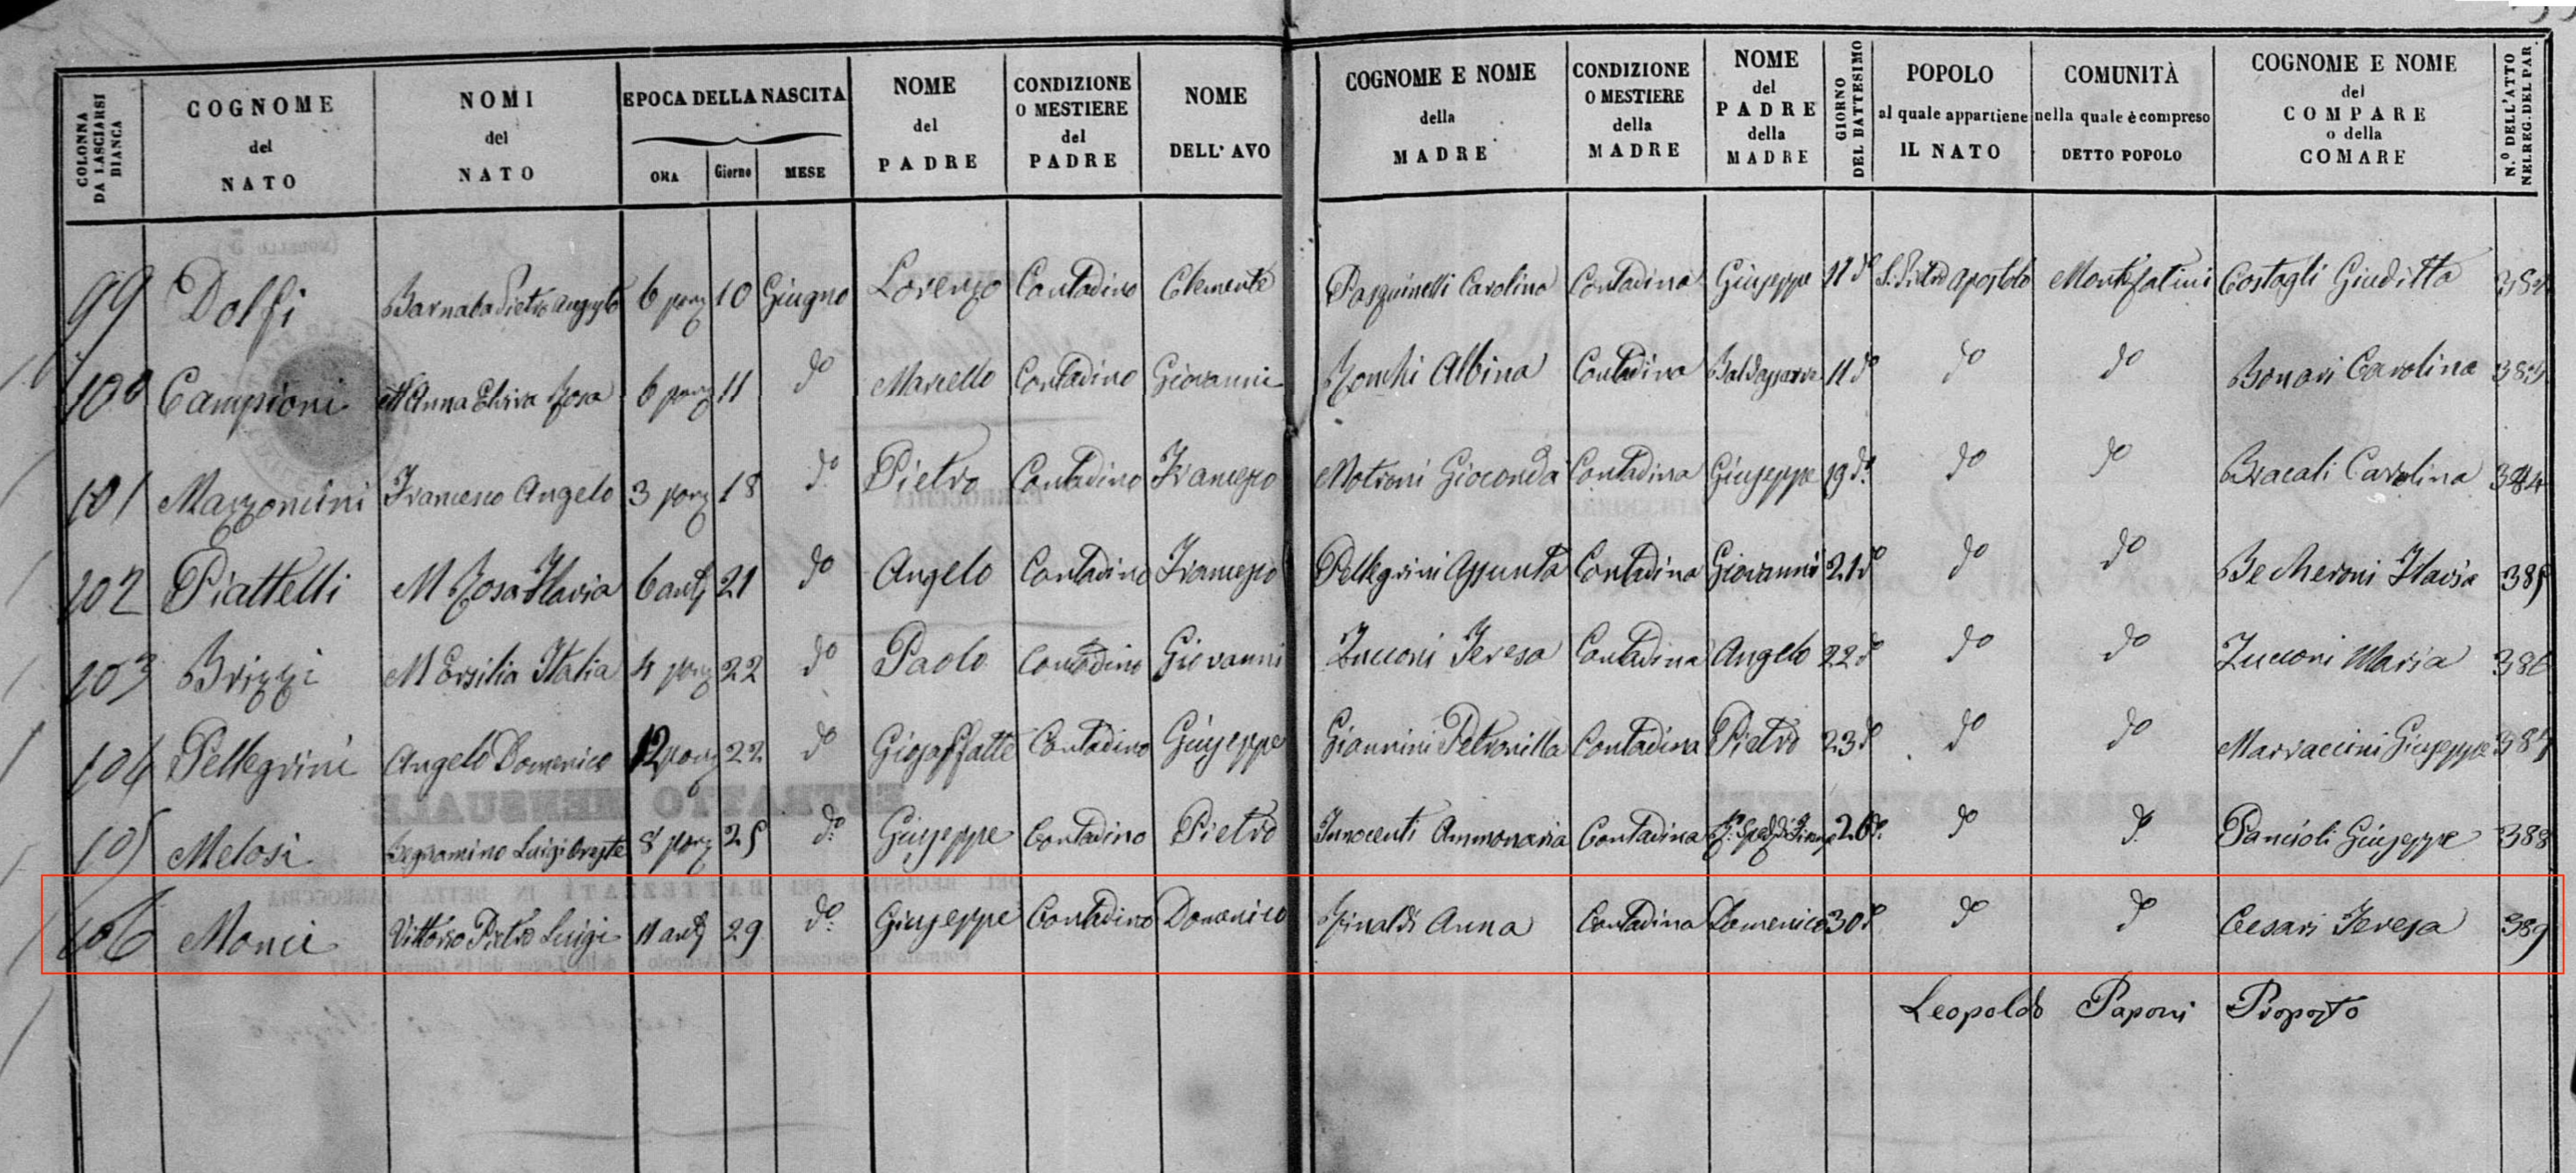 COLONNA DA LASCIARSI BIANCA
COGNOME del NATO
NOMI del NATO
EPOCA DELLA NASCITA
ORA Giorno MESE
NOME del PADRE
CONDIZIONE O MESTIERE del PADRE
NOME DELL' AVO
COGNOME E NOME della MADRE
CONDIZIONE O MESTIERE della MADRE
NOME del PADRE della MADRE
GIORNO DEL BATTESIMO
POPOLO al quale appartiene IL NATO
COMUNITÀ nella quale è compreso DETTO POPOLO
COGNOME E NOME del COMPARE o della COMARE
N.º DELL'ATTO NEL REG. DEL PAR
99 Dolfi Barnaba Pietro Angiolo 6 pom 10 Giugno Lorenzo Contadino Clemente Pasquinelli Carolina Contadina Giuseppe 11 dº S. Pietro Apostolo Montefatini Costagli Giuditta 382
100 Campioni Mª Anna Elvira Rosa 6 pom 11 dº Marcello Contadino Giovanni Ronchi Albina Contadina Baldassarre 11 dº dº dº Bonari Carolina 383
101 Mazzoncini Francesco Angelo 3 pom 18 dº Pietro Contadino Francesco Motroni Gioconda Contadina Giuseppe 19 dº dº dº Bracali Carolina 384
102 Piattelli M Rosa Flavia 6 ant 21 dº Angelo Contadino Francesco Pellegrini Assunta Contadina Giovanni 21 dº dº dº Flavia 385
103 Brizzi M Ersilia Italia 4 pom 22 dº Paolo Contadino Giovanni Zucconi Teresa Contadina Angelo 22 dº dº dº Zucconi Maria 386
104 Pellegrini Angelo Domenico 12 pom 22 dº Giosaffatte Contadino Giuseppe Giannini Petronilla Contadina Pietro 23 dº dº dº Marraccini Giuseppe 387
105 Melosi Begnamino Luigi Oreste 8 pom 25 dº Giuseppe Contadino Pietro Innocenti Ammonaria Contadina 26 dº dº dº Pancioli Giuseppe 388
106 Monci Vittorio Pietro Luigi 11 ant 29 dº Giuseppe Contadino Domenico Rinaldi Anna Contadina Domenico 30 dº dº dº Cesari Teresa 389
Leopoldo Paponi Proposto